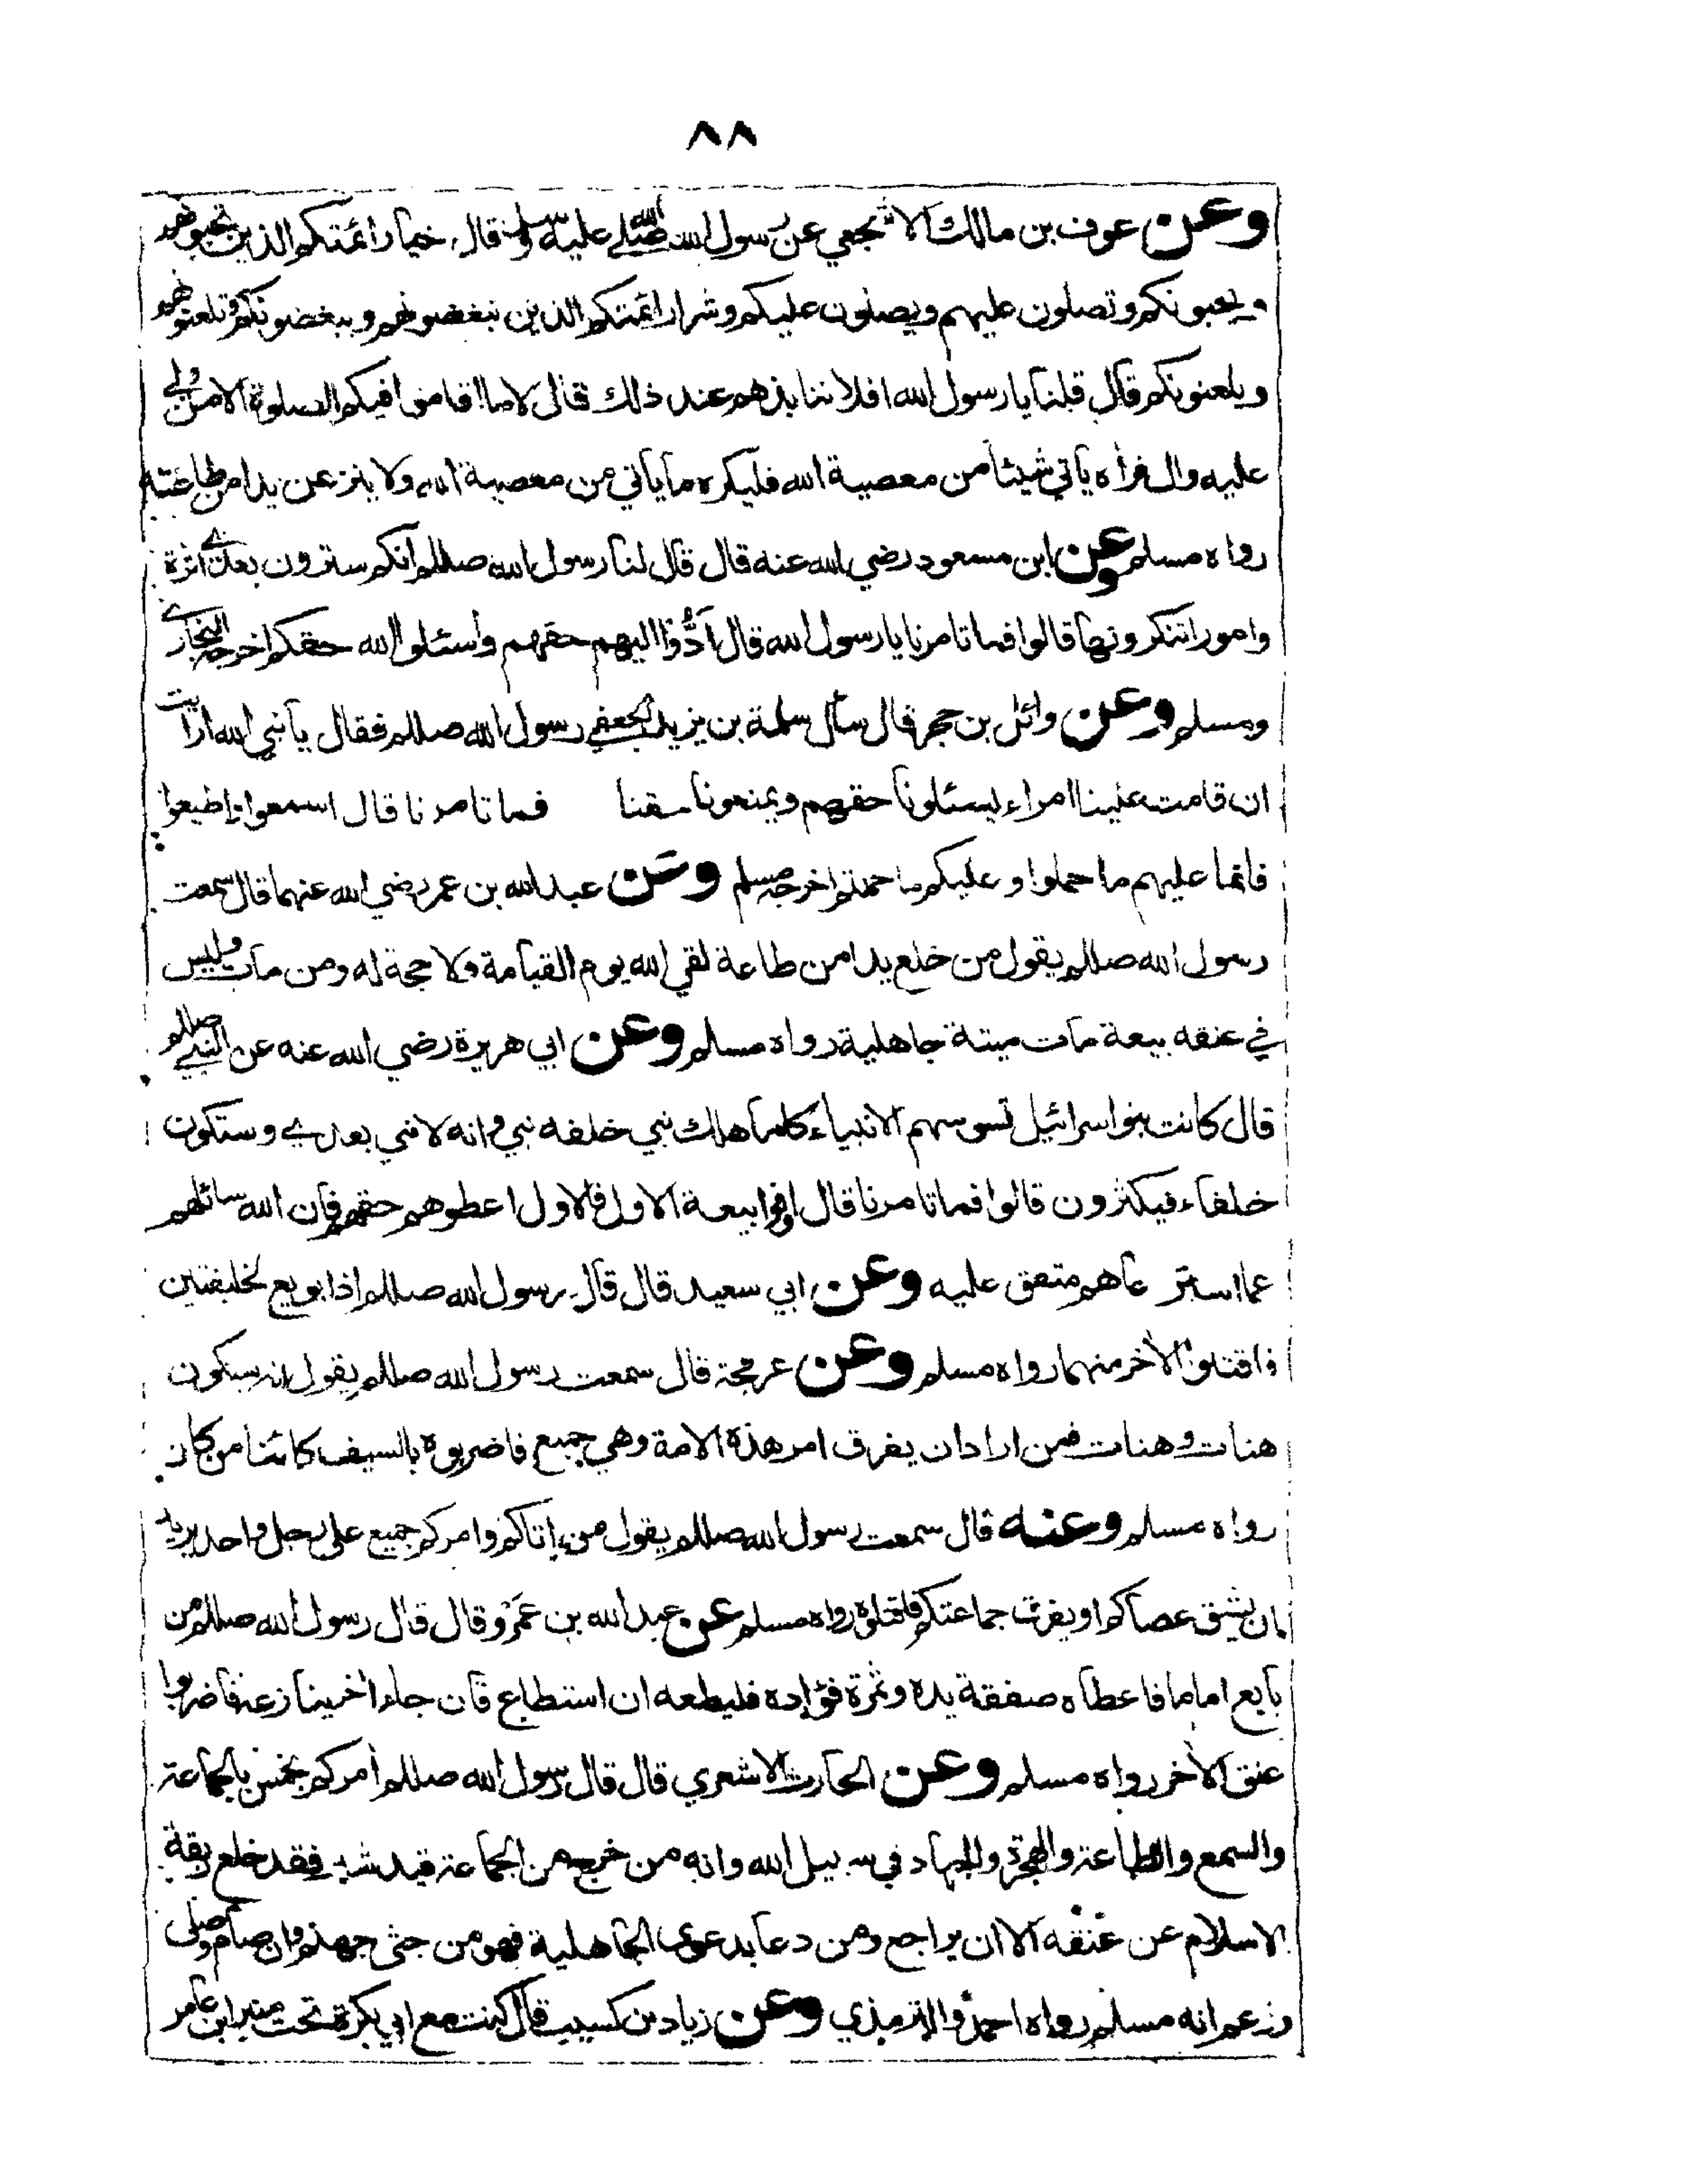 ٨٨
وعن عوف بن مالك الاشجعي عن رسول الله صلى الله عليه وسلم قال خيار ائمتكم الذين تحبونهم
ويحبونكم وتصلون عليهم ويصلون عليكم وشرار ائمتكم الذين تبغضونهم ويبغضونكم وتلعنونهم
ويلعنونكم قال قلنا يا رسول الله افلا ننابذهم عند ذلك قال لا ما اقاموا فيكم الصلوة الا من ولي
عليه وال فرأه يأتي شيئا من معصية الله فليكره ما يأتي من معصية الله ولا ينزعن يدا من طاعته
رواه مسلم وعن ابن مسعود رضي الله عنه قال قال لنا رسول الله صللم انكم سترون بعدي اثرة
وامورا تنكرونها قالوا فما تامرنا يا رسول الله قال أدُّوا اليهم حقهم واسئلوا الله حقكم اخرجه البخاري
ومسلم وعن وائل بن حجر قال سأل سلمة بن يزيد الجعفي رسول الله صللم فقال يا نبي الله ارايت
ان قامت علينا امراء يسئلونا حقهم ويمنعونا حقنا فما تامرنا قال اسمعوا واطيعوا
فانما عليهم ما حملوا وعليكم ما حملتم اخرجه مسلم وعن عبد الله بن عمر رضي الله عنهما قال سمعت
رسول الله صللم يقول من خلع يدا من طاعة لقي الله يوم القيامة ولا حجة له ومن مات وليس
في عنقه بيعة مات ميتة جاهلية رواه مسلم وعن ابي هريرة رضي الله عنه عن النبي صللم
قال كانت بنو اسرائيل تسوسهم الانبياء كلما هلك نبي خلفه نبي وانه لا نبي بعدي وستكون
خلفاء فيكثرون قالوا فما تامرنا قال اوفوا بيعة الاول فالاول اعطوهم حقهم فان الله سائلهم
عما استرعاهم متفق عليه وعن ابي سعيد قال قال رسول الله صللم اذا بويع لخليفتين
فاقتلوا الآخر منهما رواه مسلم وعن عرفجة قال سمعت رسول الله صللم يقول انه سيكون
هنات وهنات فمن اراد ان يفرق امر هذه الامة وهي جميع فاضربوه بالسيف كائنا من كان
رواه مسلم وعنه قال سمعت رسول الله صللم يقول من اتاكم وامركم جميع على رجل واحد يريد
ان يشق عصاكم او يفرق جماعتكم فاقتلوه رواه مسلم عن عبد الله بن عمرو قال قال رسول الله صللم من
بايع اماما فاعطاه صفقة يده وثمرة فؤاده فليطعه ان استطاع فان جاء اخر ينازعه فاضربوا
عنق الآخر رواه مسلم وعن الحارث الاشعري قال قال رسول الله صللم أمركم بخمس بالجماعة
والسمع والطاعة والهجرة والجهاد في سبيل الله وانه من خرج من الجماعة قيد شبر فقد خلع ربقة
الاسلام عن عنقه الا ان يراجع ومن دعا بدعوى الجاهلية فهو من جثى جهنم وان صام وصلى
وزعم انه مسلم رواه احمد والترمذي وعن زياد بن كسيب قال كنت مع ابي بكرة تحت منبر ابن عامر